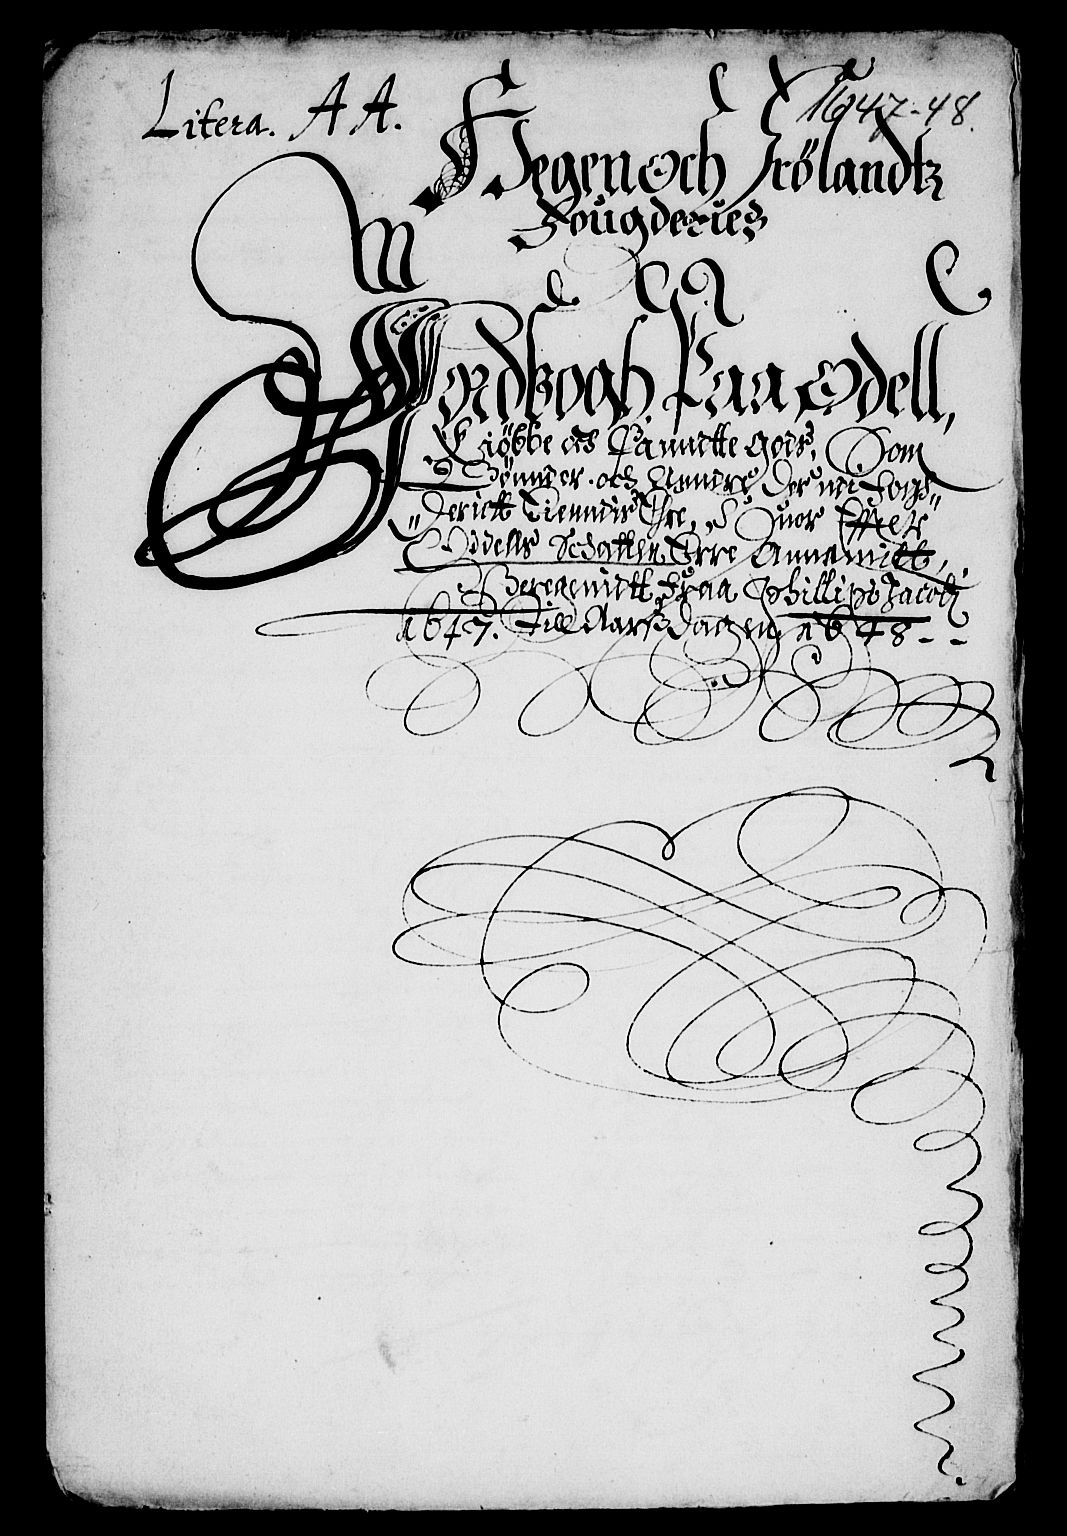 Litera. A A.
1647-48.
Heggen och Frölandtz
Fougderies
Jordbogh Paa Odell,
Kiøbbe och Pannitte Gods, Som
Bønnder och Andre der udi Foug„
„deriett Tienndis Ehre, Huor Effter
Oddells Schatten Erre Annamitt,
Beregenidtt Fraa Phillipi Jacobj
1647. Till Aarsdagen 1648 - -